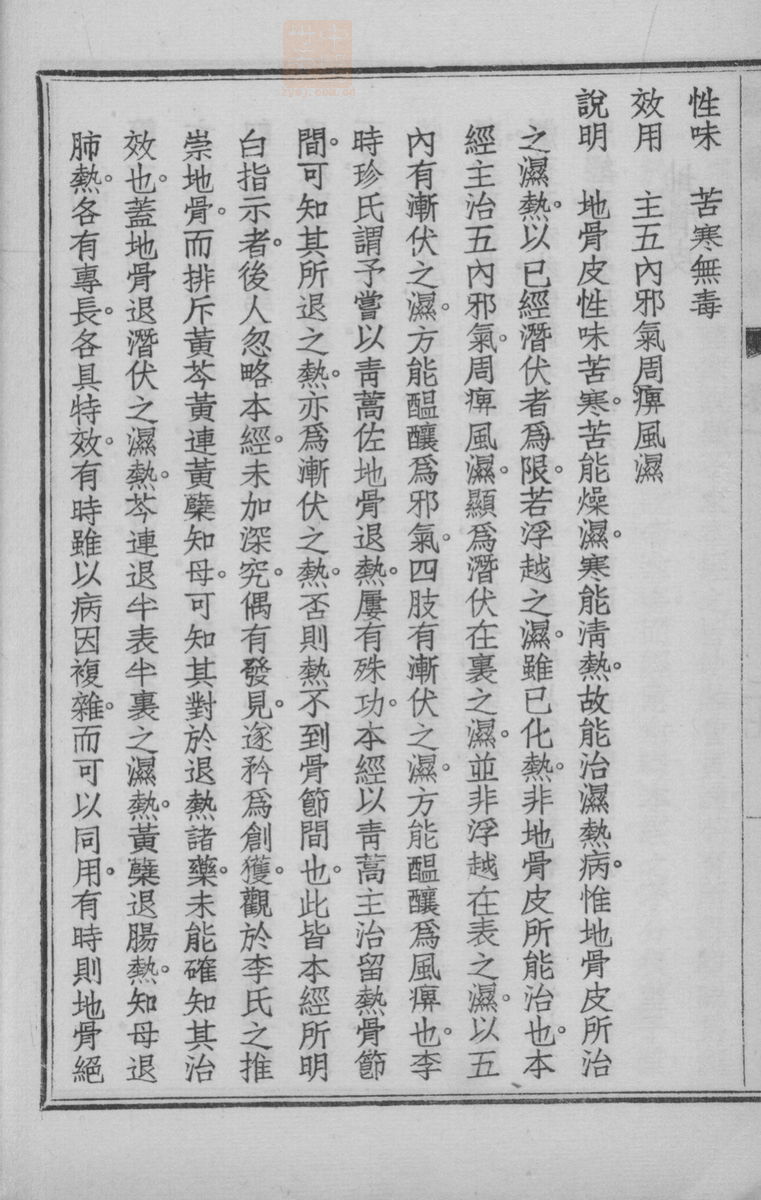 性味　苦寒無毒
效用　主五內邪氣周痹風濕
說明　地骨皮性味苦寒。苦能燥濕。寒能清熱。故能治濕熱病。惟地骨皮所治
之濕熱。以已經潛伏者爲限。若浮越之濕。雖已化熱。非地骨皮所能治也。本
經主治五內邪氣。周痹風濕。顯爲潛伏在裏之濕。並非浮越在表之濕。以五
內有漸伏之濕。方能醞釀爲邪氣。四肢有漸伏之濕。方能醞釀爲風痹也。李
時珍氏謂予嘗以靑蒿佐地骨退熱。屢有殊功。本經以靑蒿主治留熱骨節
間。可知其所退之熱。亦爲漸伏之熱。否則熱不到骨節間也。此皆本經所明
白指示者。後人忽略本經。未加深究。偶有發見。遂矜爲創獲。觀於李氏之推
崇地骨。而排斥黃芩黃連黃蘗知母。可知其對於退熱諸藥。未能確知其治
效也。蓋地骨退潛伏之濕熱。芩連退半表半裏之濕熱。黃蘗退腸熱。知母退
肺熱。各有專長。各具特效。有時雖以病因複雜。而可以同用。有時則地骨絕